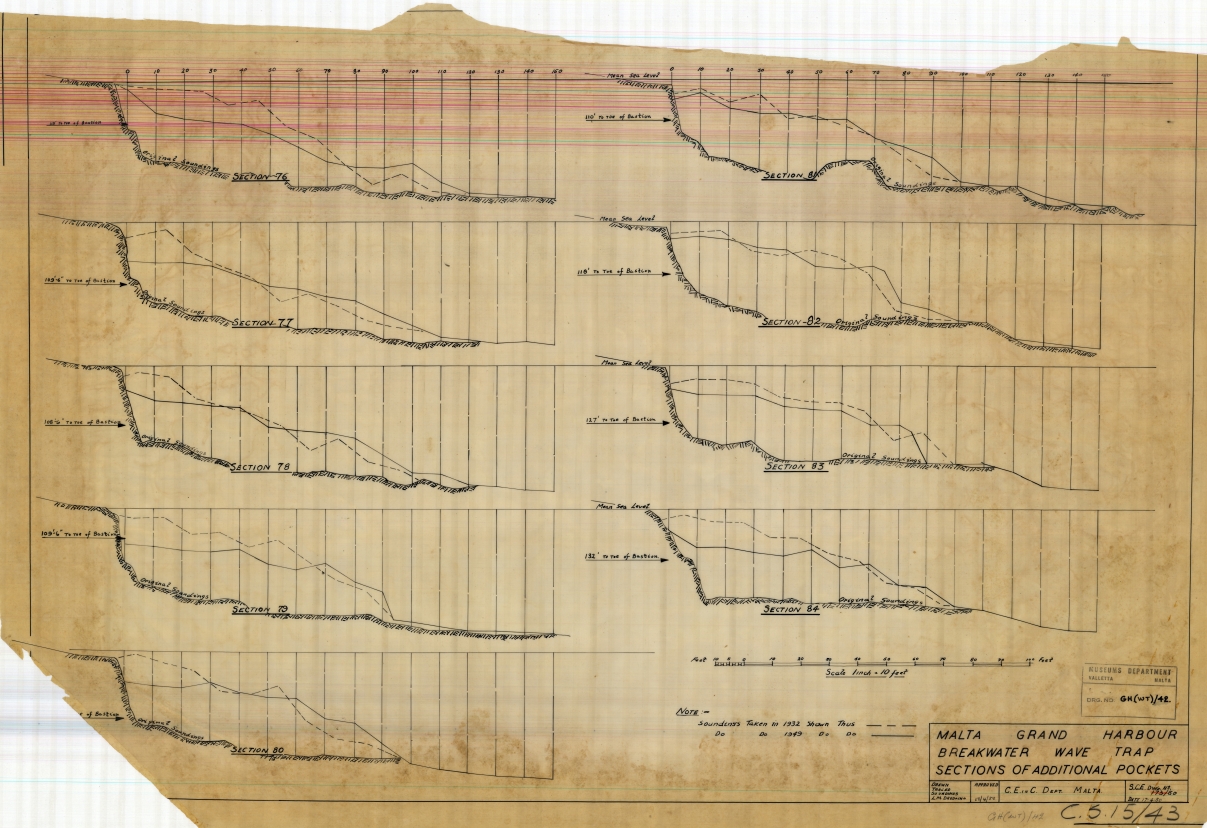 0 10 20 30 50 70 80 100 120 130 140 150
Original Soundings
SECTION 76
Mean Sea Level
0 10 20 30 40 50 60 70 80 90 100 110 120 130 140
110' To Toe of Bastion
Original Soundings
SECTION 81
109'-6" To Toe of Bastion
Original Soundings
SECTION 77
Mean Sea Level
118' To Toe of Bastion
Original Soundings
SECTION 82
To Toe of Bastion
Original Soundings
SECTION 78
Mean Sea Level
127' To Toe of Bastion
Original Soundings
SECTION 83
109'-6" To Toe of Bastion
Original Soundings
SECTION 79
Mean Sea Level
132' To Toe of Bastion
Original Soundings
SECTION 84
of Bastion
Original Soundings
SECTION 80
Feet 10 0 10 20 30 40 50 60 70 80 90 100 Feet
Scale 1 inch = 10 feet
NOTE :-
Soundings Taken in 1932 Shown Thus
Do Do 1949 Do Do
MUSEUMS DEPARTMENT
VALLETTA MALTA
DRG. NO. GH(WT)/42
MALTA GRAND HARBOUR
BREAKWATER WAVE TRAP
SECTIONS OF ADDITIONAL POCKETS
DRAWN
TRACED
SOUNDINGS
APPROVED
C.E. in C. DEPT. MALTA.
S.C.E. Drg. No.
DATE
GH(WT)/42 C.S.15/43